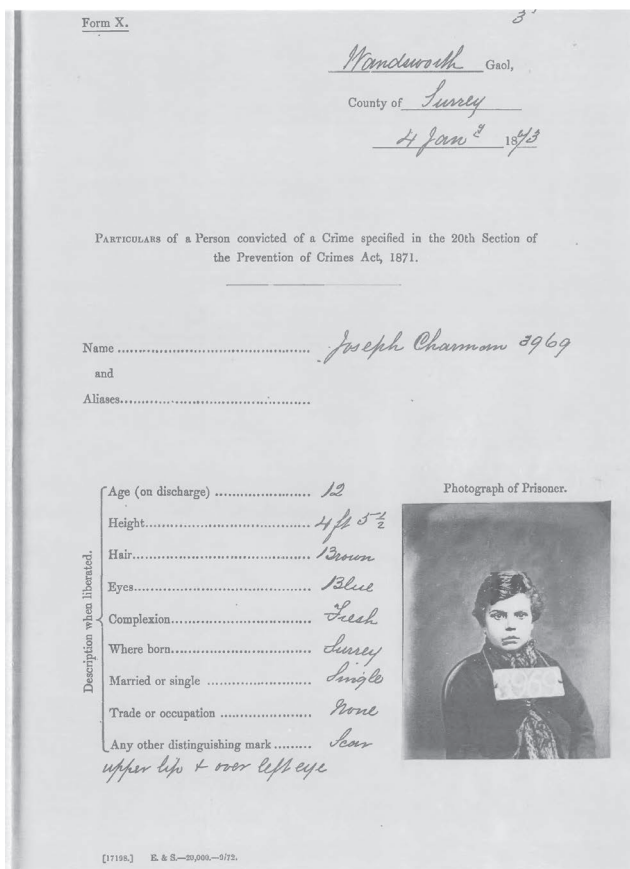 Form X.
3
Wandsworth Gaol,
County of Surrey
4 Jany 1873
PARTICULARS of a Person convicted of a Crime specified in the 20th Section of
the Prevention of Crimes Act, 1871.
Name .......................................... Joseph Charman 3969
and
Aliases..........................................
Description when liberated.
Age (on discharge) ..................... 12
Height..................................... 4 ft 5 1/2
Hair......................................... Brown
Eyes......................................... Blue
Complexion............................... Fresh
Where born............................... Surrey
Married or single ....................... Single
Trade or occupation .................... None
Any other distinguishing mark ......... Scar
upper lip + over left eye
Photograph of Prisoner.
3969
[17198.] E. & S.—20,000.—9/72.